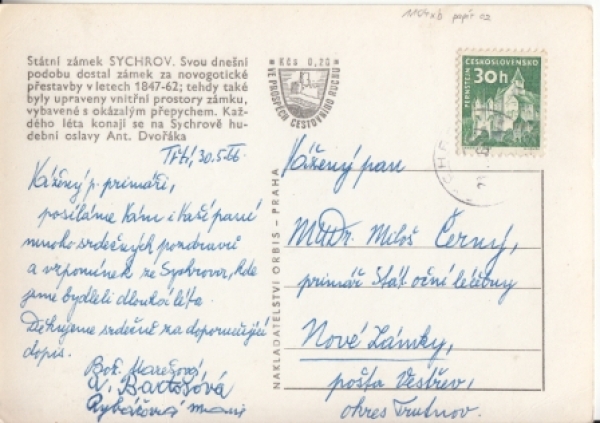 1104xb popř cz
Státní zámek SYCHROV. Svou dnešní
podobu dostal zámek za novogotické
přestavby v letech 1847-62; tehdy také
byly upraveny vnitřní prostory zámku,
vybavené s okázalým přepychem. Kaž-
dého léta konají se na Sychrově hu-
dební oslavy Ant. Dvořáka
Kčs 0,20
VE PROSPĚCH CESTOVNÍHO RUCHU
ČESKOSLOVENSKO
30h
PERNŠTEJN
30.5.66
Vážený p. primáři,
posíláme Vám i Vaší paní
mnoho srdečných pozdravů
a vzpomínek ze Sychrova, kde
jsme bydleli dlouhá léta.
Děkujeme srdečně za doporučující
dopis.
Bož. Marešová
V. Bartošová
Rybářová
NAKLADATELSTVÍ ORBIS - PRAHA
Vážený pan
MUDr. Miloš Černý,
primář Stát. oční léčebny
Nové Zámky,
pošta Vestřev,
okres Trutnov.